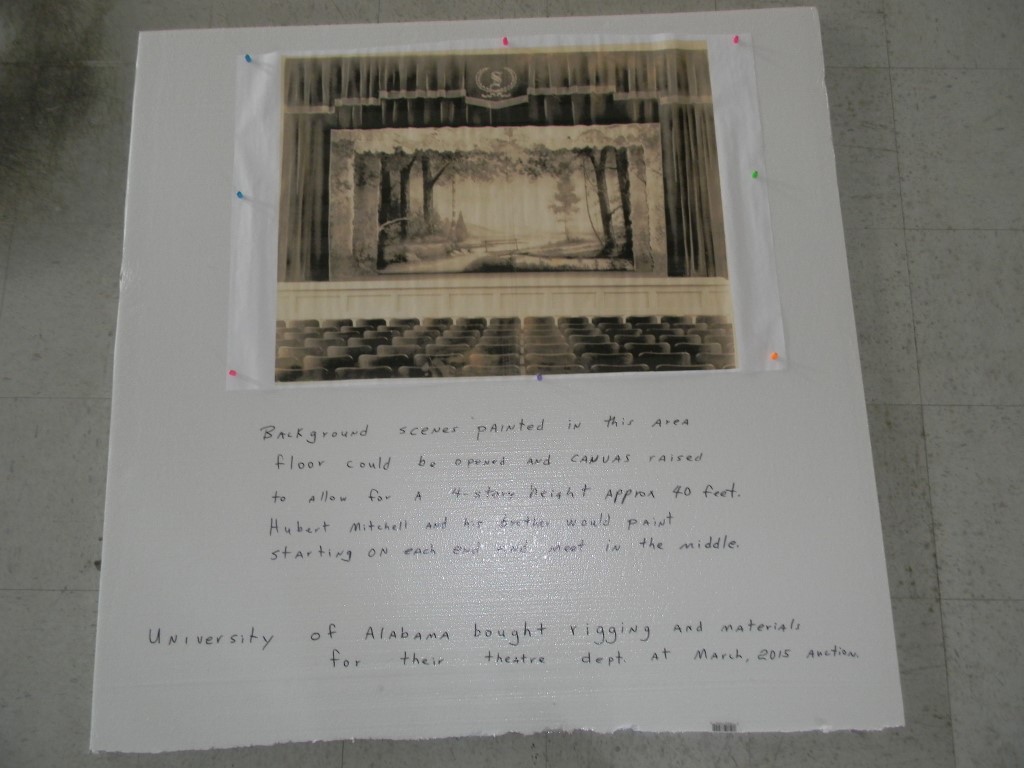 S
Background scenes painted in this area
floor could be opened and canvas raised
to allow for a 4-story height approx 40 feet.
Hubert Mitchell and his brother would paint
starting on each end and meet in the middle.
University of Alabama bought rigging and materials
for their theatre dept. at March, 2015 auction.